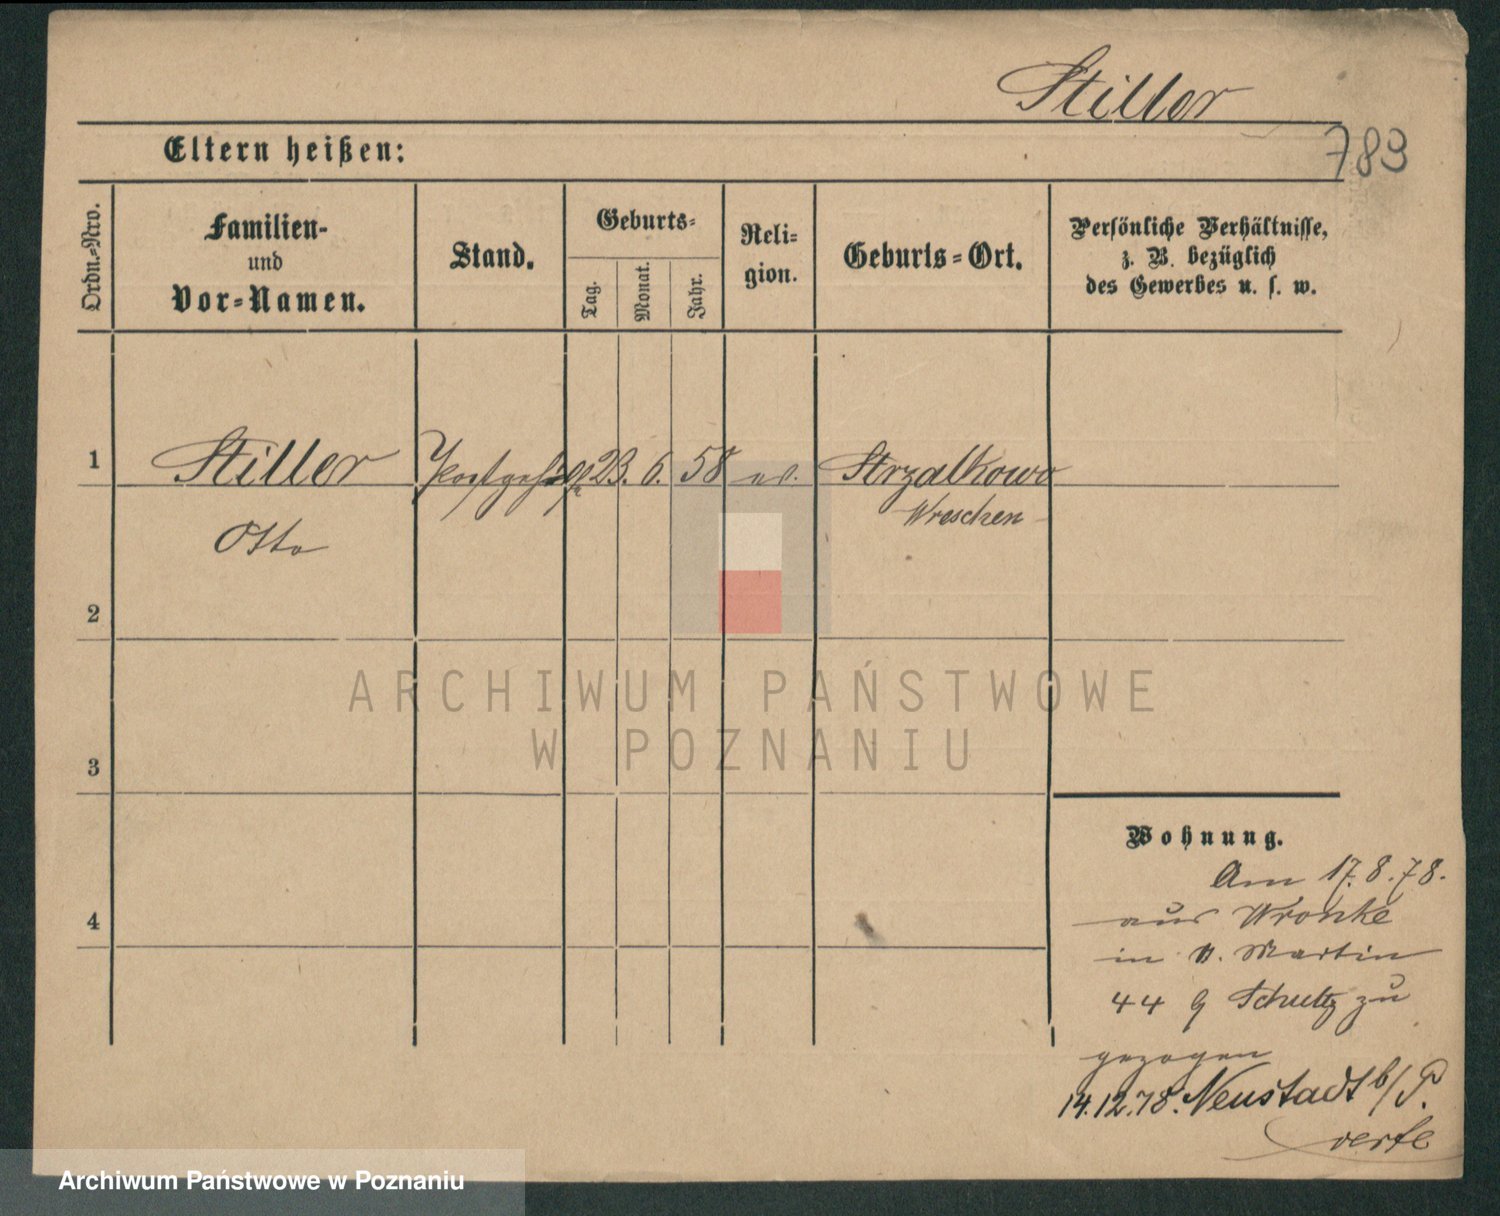 Stiller
783
Eltern heißen:
Ordn.-Nro.
Familien-
und
Vor-Namen.
Stand.
Geburts-
Tag.
Monat.
Jahr.
Reli-
gion.
Geburts-Ort.
Persönliche Verhältnisse,
z. B. bezüglich
des Gewerbes u. s. w.
1 Stiller 23. 6. 58 ev. Strzalkowo
Wreschen
Otto
2
3
4
ARCHIWUM PAŃSTWOWE
W POZNANIU
Wohnung.
Am 17.8.78.
aus Wronke
in St. Martin
44 Schultz zu
gezogen
14.12.78. Neustadt b/P.
Archiwum Państwowe w Poznaniu